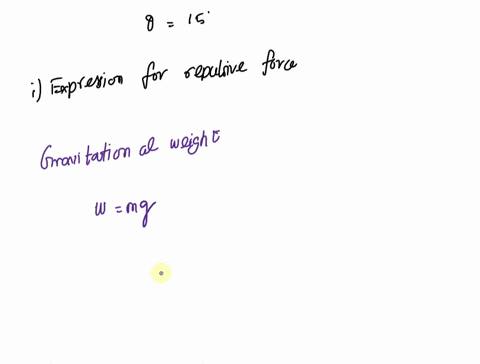 θ = 15°
i) Expression for repulsive force
Gravitational weight
w = mg